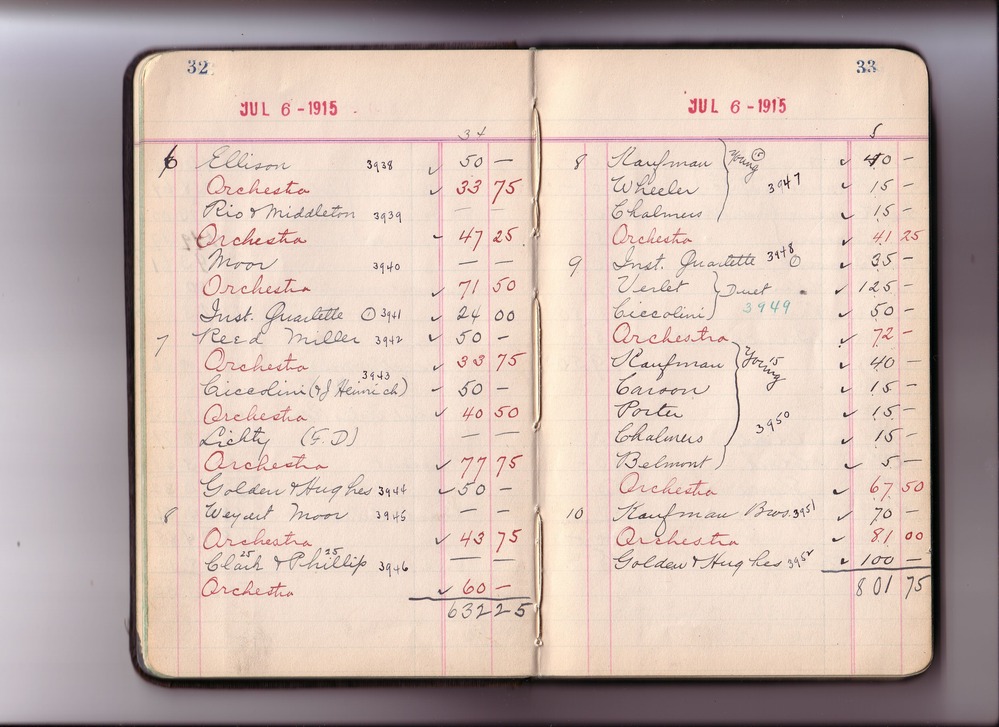 32
JUL 6 - 1915
34
6 Ellison 3938 ✓ 50 —
Orchestra ✓ 33 75
Rio & Middleton 3939 — —
Orchestra ✓ 47 25
Moor 3940 — —
Orchestra ✓ 71 50
Inst. Quartette 3941 ✓ 24 00
7 Reed Miller 3942 ✓ 50 —
Orchestra ✓ 33 75
3943
Ciccolini (& J Heinrich) ✓ 50 —
Orchestra ✓ 40 50
Lichty (F. D) — —
Orchestra ✓ 77 75
Golden & Hughes 3944 ✓ 50 —
8 Weyert Moor 3945 — —
Orchestra ✓ 43 75
25 25
Clark & Phillip 3946 — —
Orchestra ✓ 60 —
632 25
33
JUL 6 - 1915
5
8 Kaufman Young 15 ✓ 40 —
Wheeler 3947 ✓ 15 —
Chalmers ✓ 15 —
Orchestra ✓ 41 25
9 Inst. Quartette 3948 ✓ 35 —
Verlet Duet ✓ 125 —
Ciccolini 3949 ✓ 50 —
Orchestra ✓ 72 —
Kaufman Young 15 ✓ 40 —
Caroon ✓ 15 —
Porter 3950 ✓ 15 —
Chalmers ✓ 15 —
Belmont ✓ 5 —
Orchestra ✓ 67 50
10 Kaufman Bros. 3951 ✓ 70 —
Orchestra ✓ 81 00
Golden & Hughes 3952 ✓ 100 —
801 75